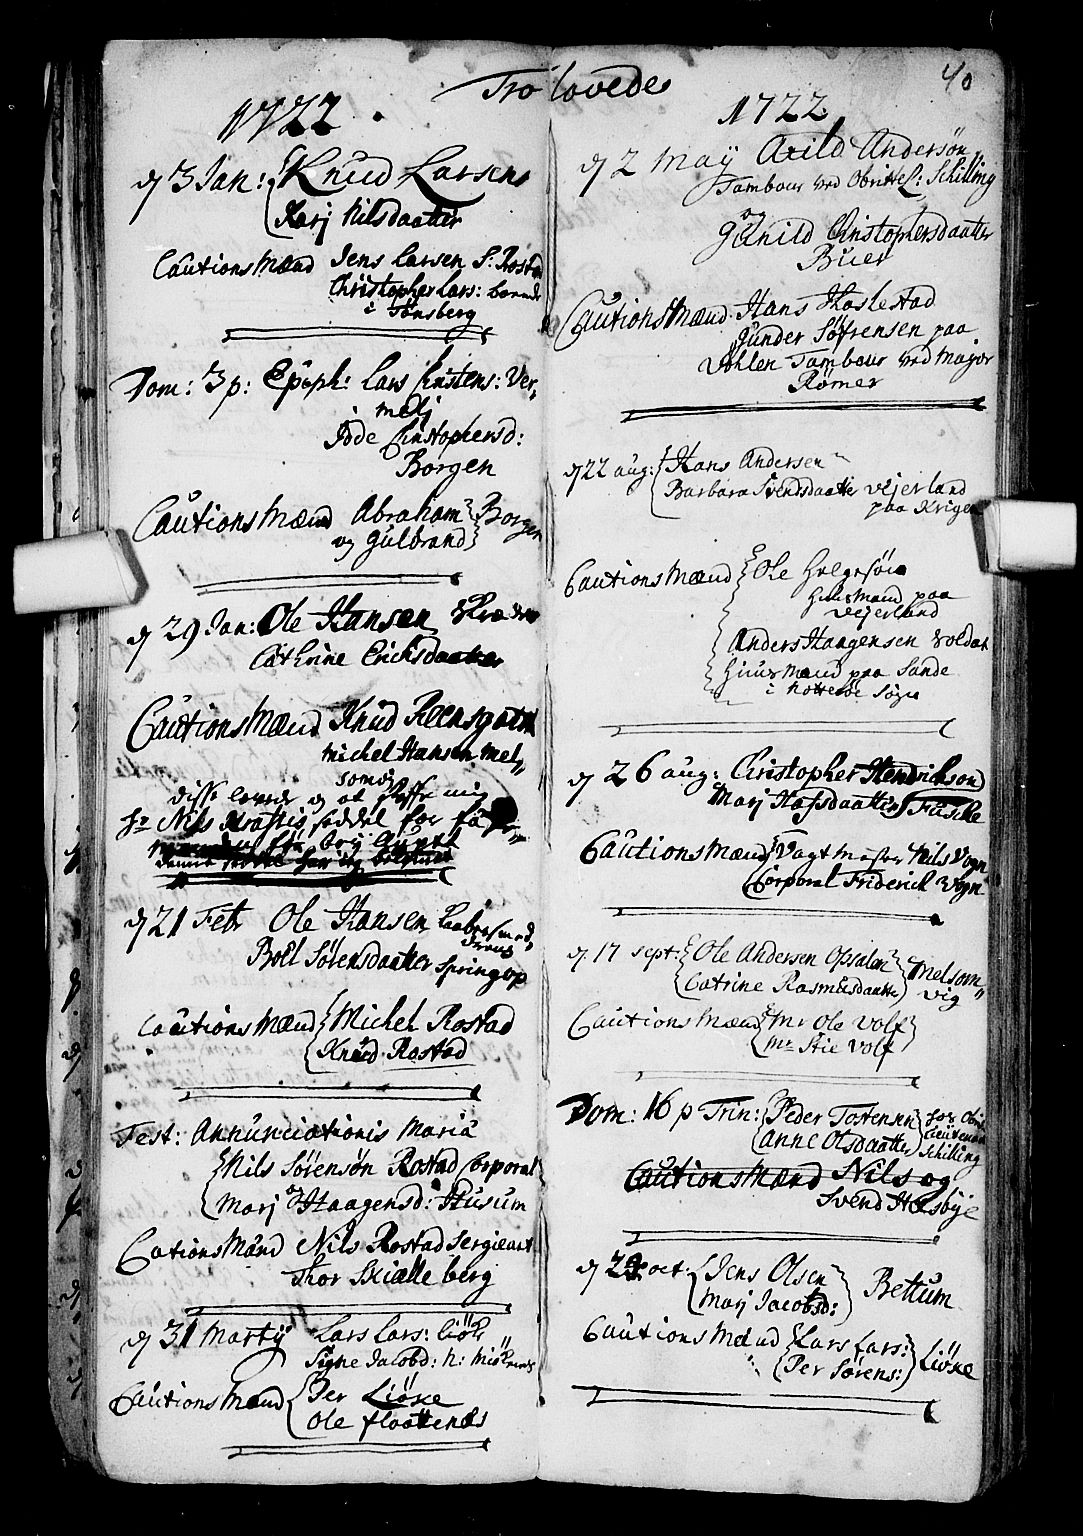 40
Trolovede
1722.
d 3 Jan: Knud Larsen
Marj Nilsdaatter
Cautions Mænd Jens Larsen S: Rostad
Christopher Lars: boende
i Tønsberg
Dom: 3 p: Epiph: Lars Christens: Ver„
melj
Christophersd:
Borgen
Cautions Mænd Abraham Borgen
og Guldrand
d 29 Jan: Ole Hansen
Cathrine Erichsdaatter
Cautions Mænd Knud
Michel Hansen Mel„
somvig
disse lovede og at skaffe mig
Hr Nils seddel for
d 21 Febr Ole Hansen
Boel Sørensdaatter Springop
Cautions Mænd Michel Rostad
Knud Rostad
Fest: Annunciationis Mariæ
Nils Sørensøn Rostad Corporal
og
Marj Haagensd: Husum
Cations Mænd Nils Rostad Sergieant
Thor Skialleberg
d 31 Martij Lars Lars: Liøke
Signe Jacobsd: N:
Cautions Mænd Per Liøke
Ole Fløttenæs
1722.
d 2 Maij Arild Andersøn
Tambour ved Obriste L: Schilling
og
Gunild Christophersdaatter
Buer
Cautions Mænd Hans Haslestad
Gunder Søfrensen paa
Dahlen Tambour ved Major
Rømer
d 22 aug: Hans Andersen
Barbara Svendsdaatter Vejerland
paa Krigen
Cautions Mænd Ole Helgesøn
Huusmand paa
Vejerland
Anders Haagensen Soldat
Huusmand paa Sande
i Nøtterøe Sogn
d 26 aug: Christopher Hendrichsøn
Marj Hansdaatter Fuske
Cautions Mænd Vagtmester Nils Vogn
Corporal Friderich Vogn
d. 17 sept: Ole Andersen Opsalen Melsom„
Catrine Rasmusdaatter vig
Cautions Mænd Mr Ole Volf
Mr Stie Volf
Dom: 16 p Trin: Peder Tostensen for Obrist
Anne Olsdaatter Lieutenant
Schilling
Cautions Mænd Nils og
Svend Hesbye
d 29 oct: Jens Olsen Bettum
Marj Jacobsd:
Cautions Mænd Lars Lars: Liøke
Per Sørens: